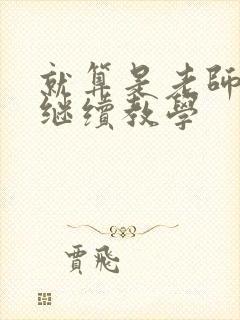 就算是老師
继續教學
賈飛